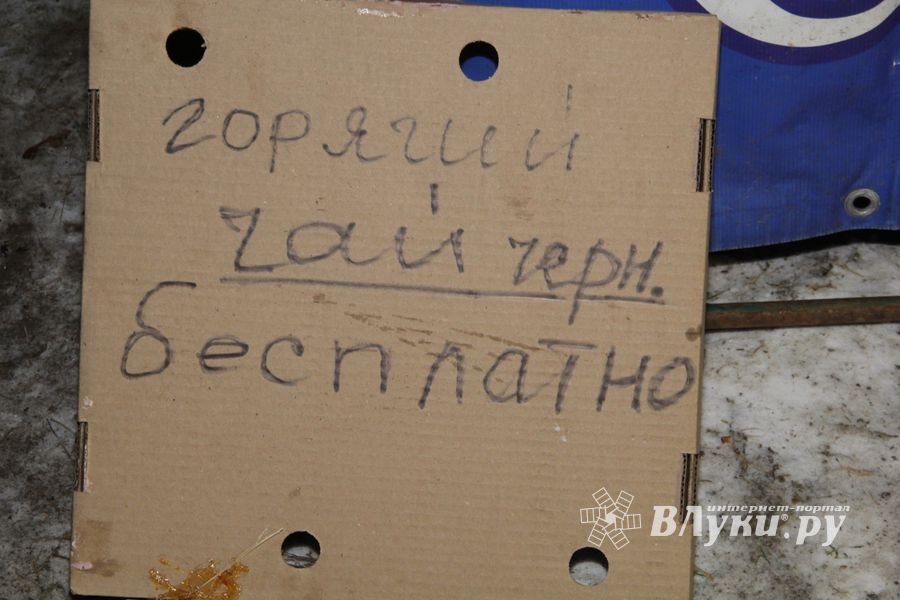 горячий
чай черн.
бесплатно
интернет-портал
ВЛуки.ру